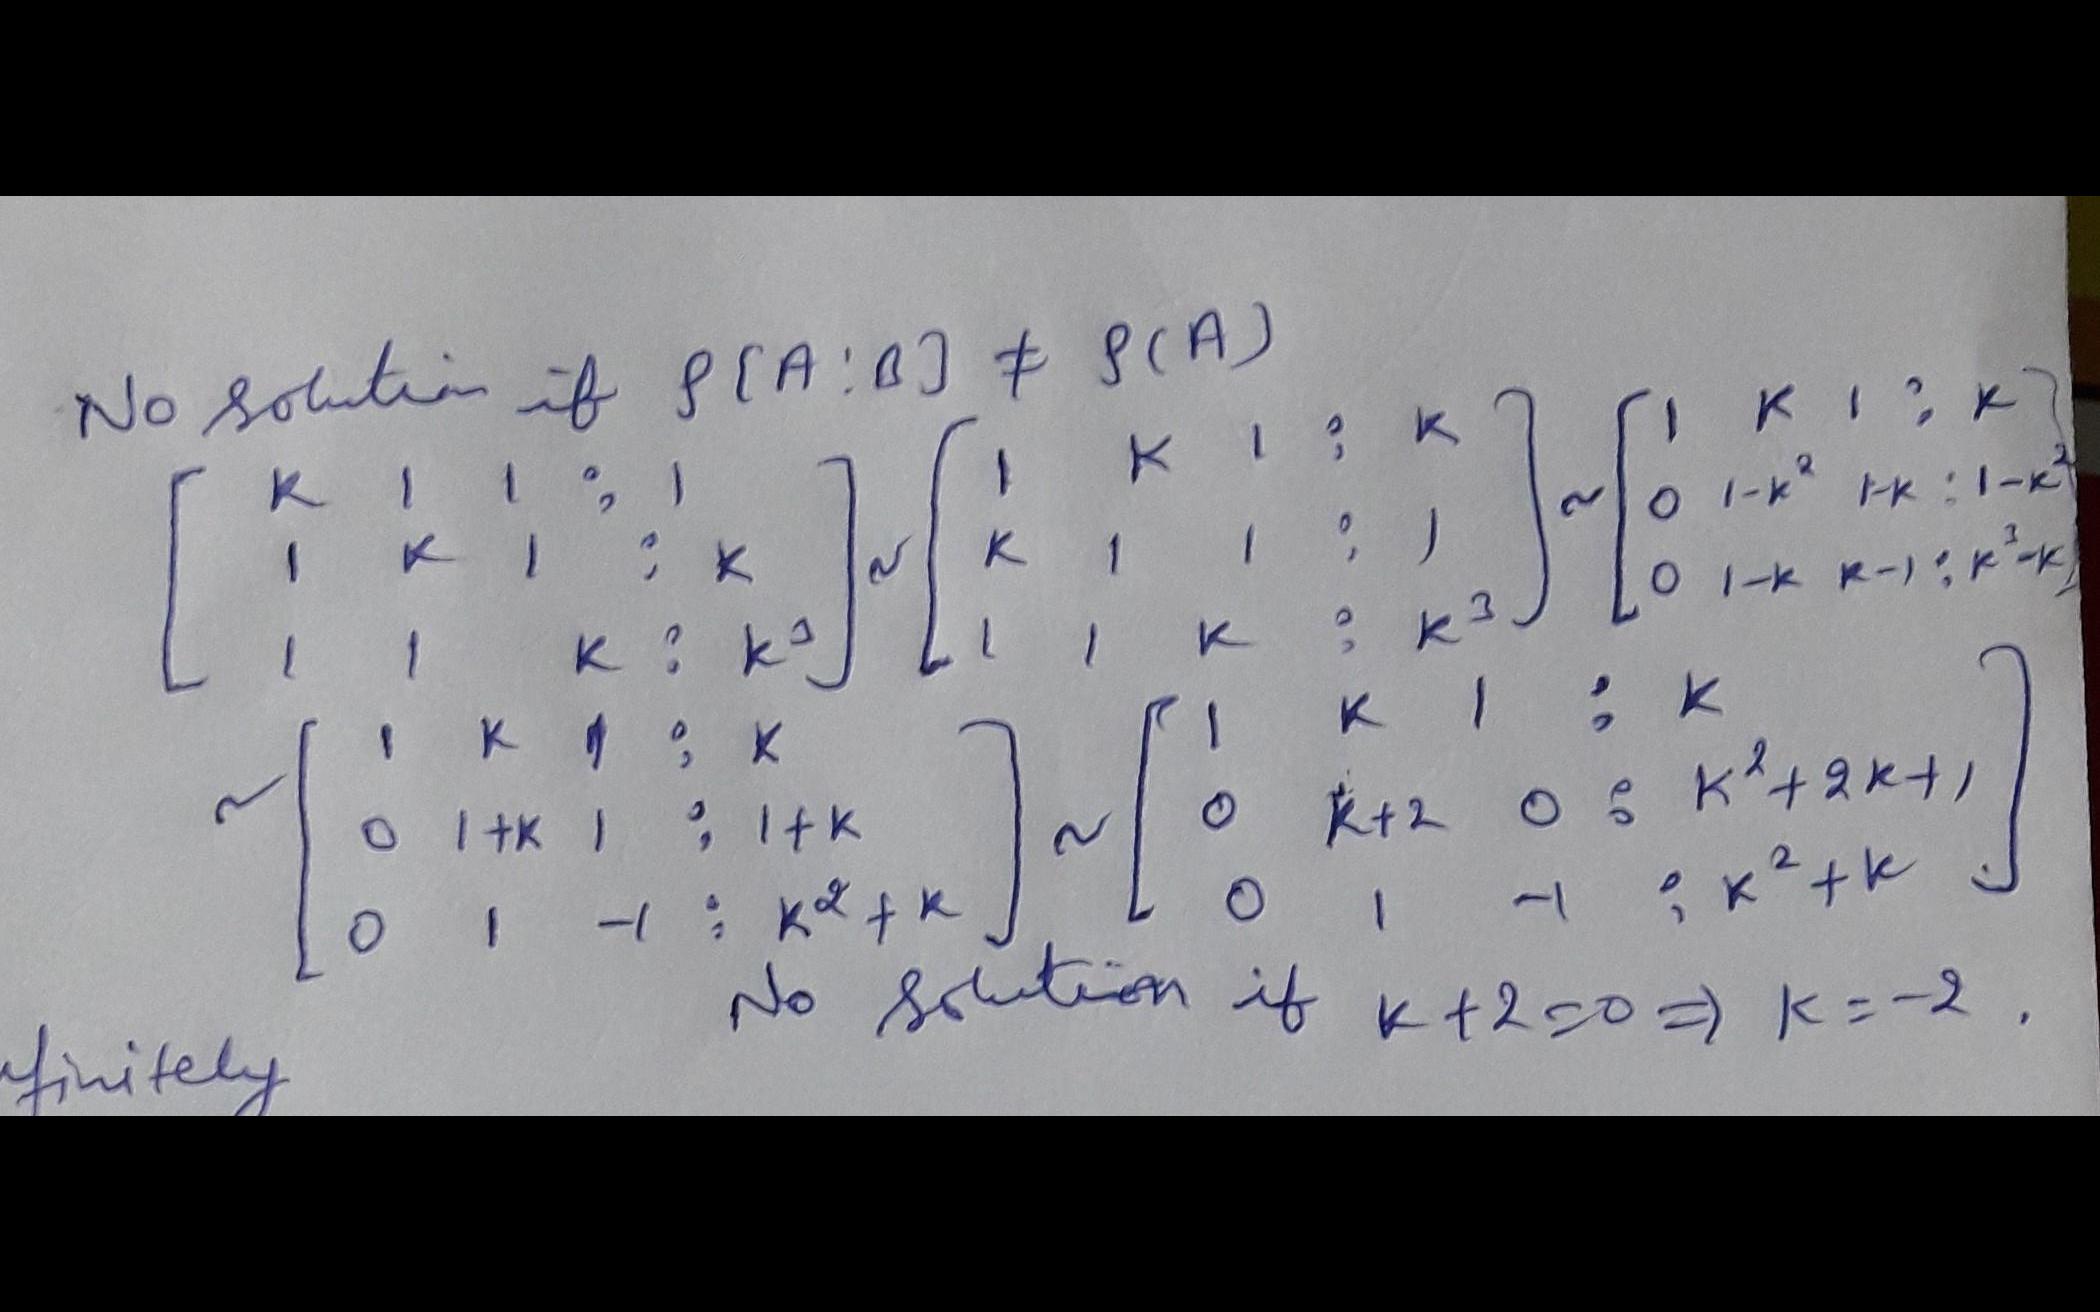 No solution if ρ[A:B] ≠ ρ(A)
[K 1 1 : 1; 1 K 1 : K; 1 1 K : K³] ~ [1 K 1 : K; K 1 1 : 1; 1 1 K : K³] ~ [1 K 1 : K; 0 1-K² 1-K : 1-K²; 0 1-K K-1 : K³-K]
~ [1 K 1 : K; 0 1+K 1 : 1+K; 0 1 -1 : K²+K] ~ [1 K 1 : K; 0 K+2 0 : K²+2K+1; 0 1 -1 : K²+K]
No solution if K+2=0 ⇒ K=-2.
finitely